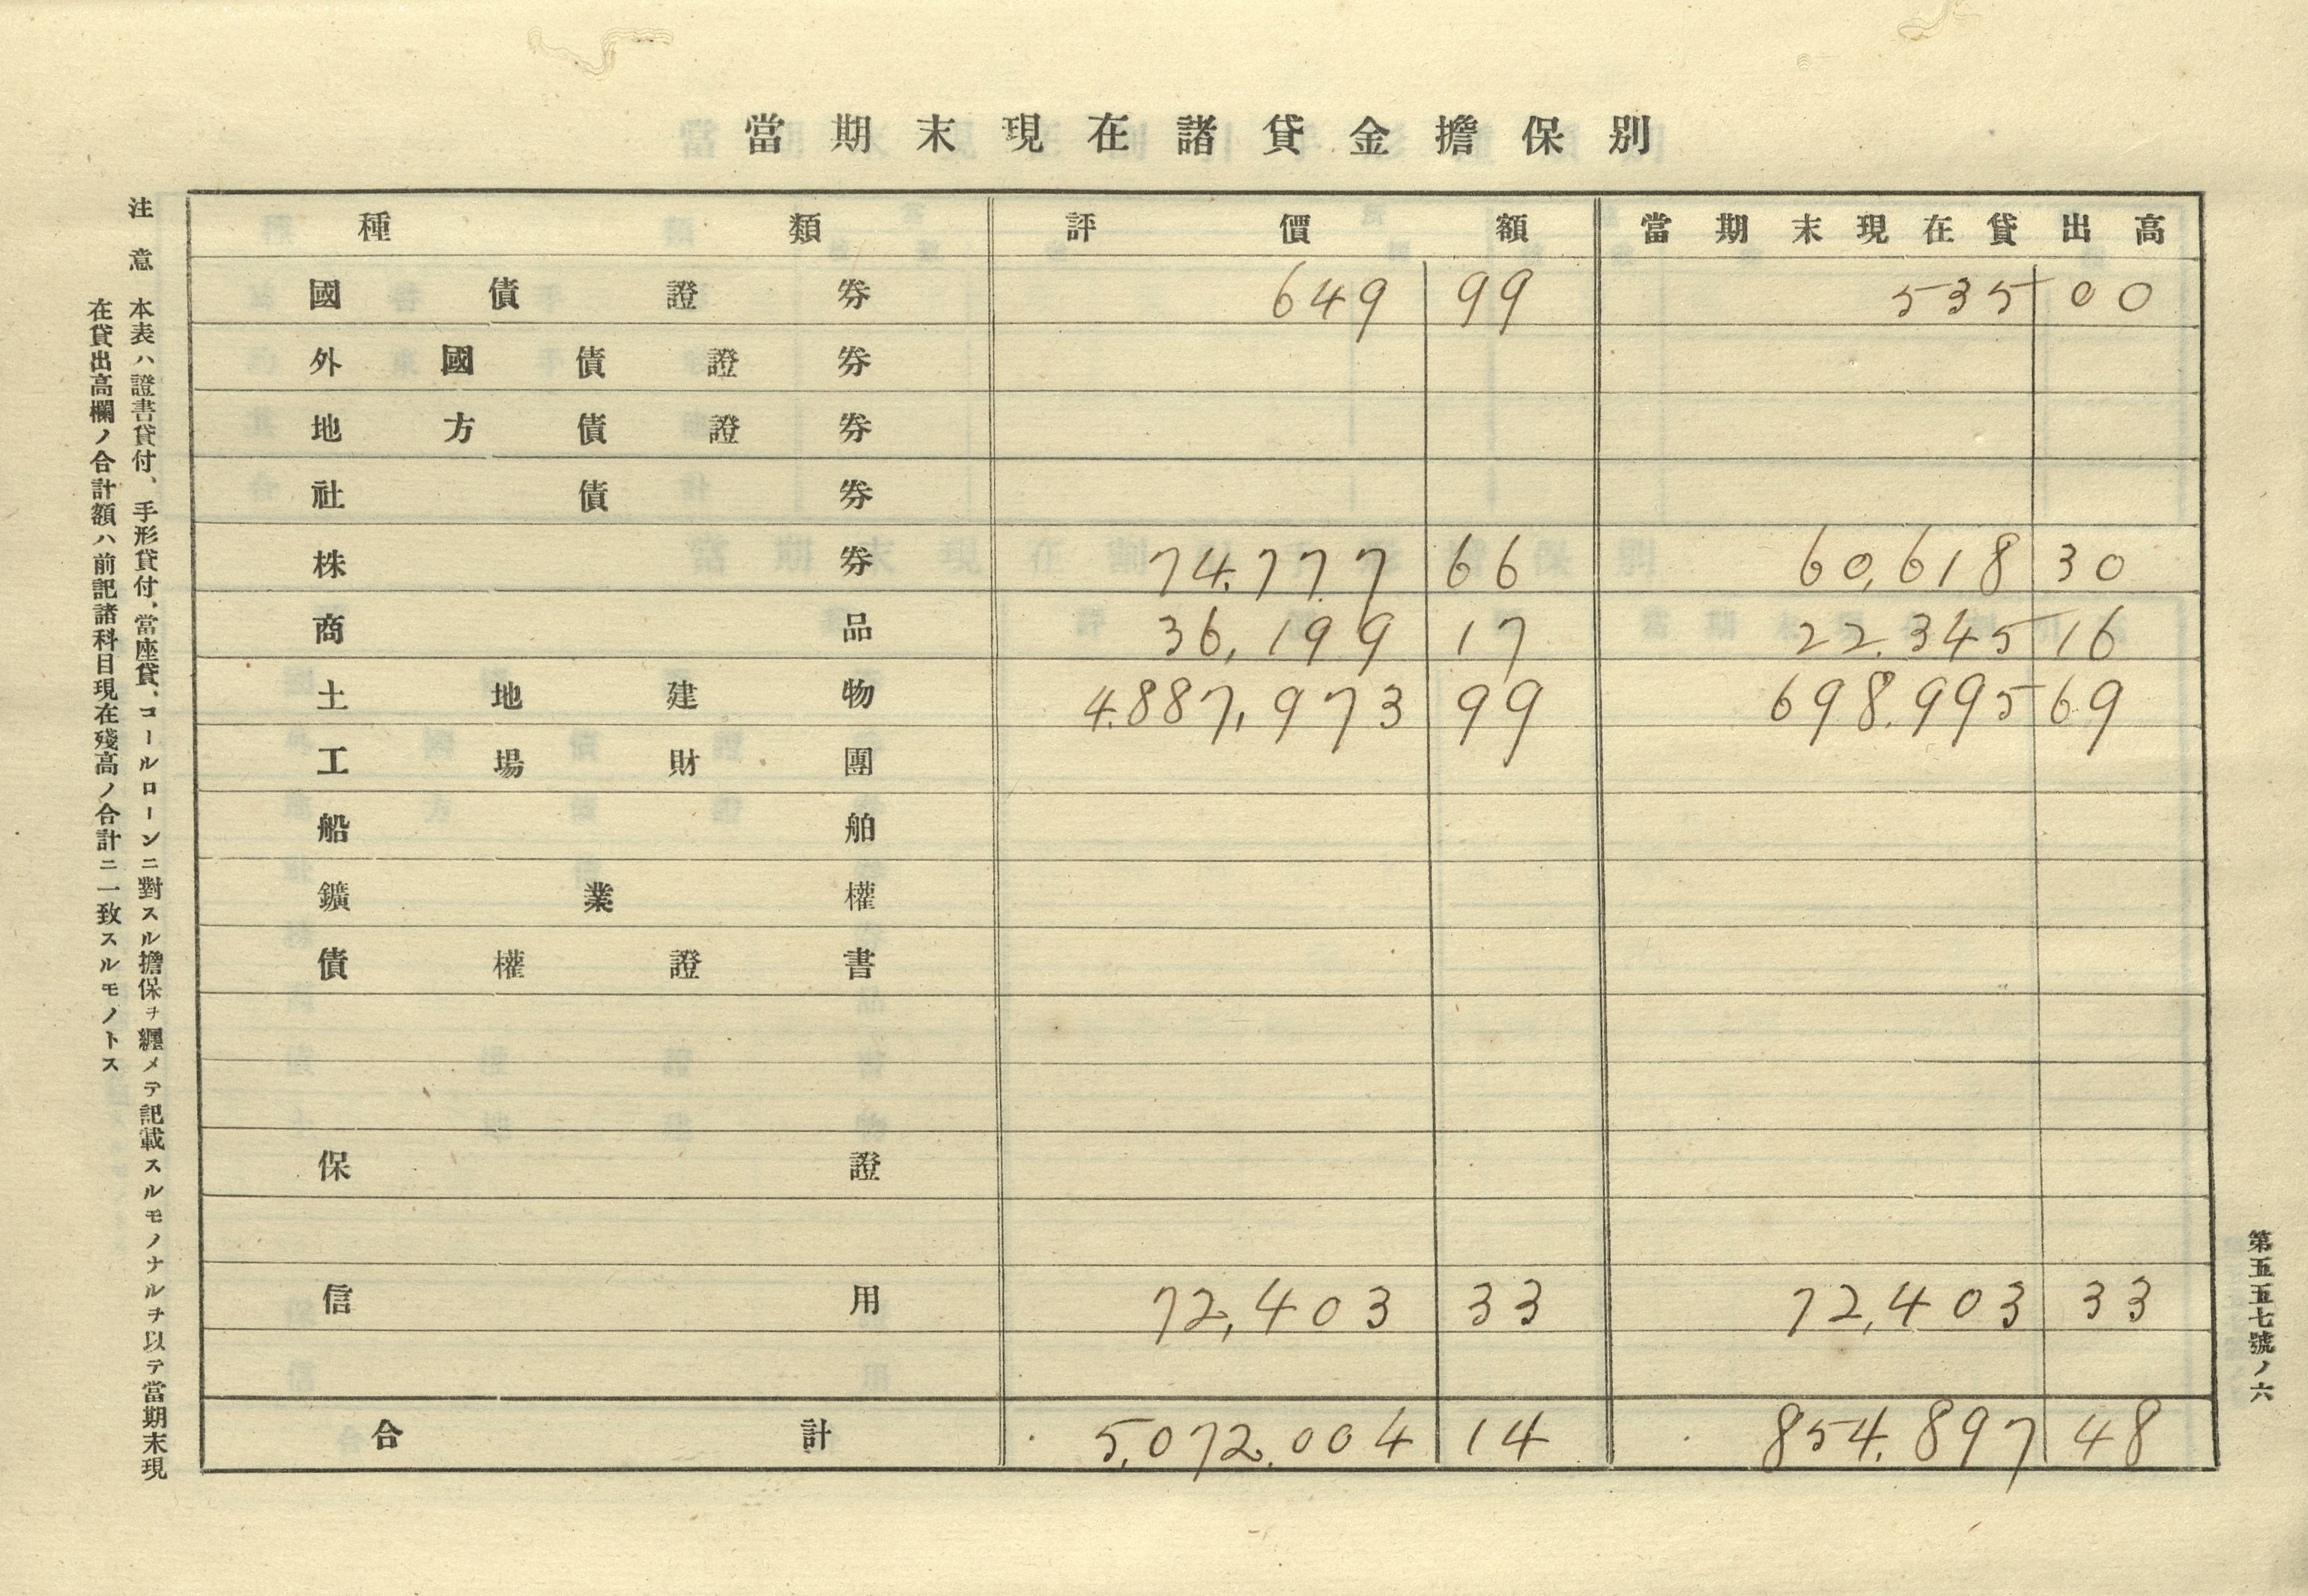 當期末現在諸貸金擔保別
種類 評價額 當期末現在貸出高
國債證券 649 99 535 00
外國債證券
地方債證券
社債券
株券 74.777 66 60,618 30
商品 36,199 17 22.345 16
土地建物 4.887,973 99 698.995 69
工場財團
船舶
鑛業權
債權證書
保證
信用 72,403 33 72,403 33
合計 5,072.004 14 854.897 48
注意 本表ハ證書貸付、手形貸付、當座貸、コールローンニ對スル擔保ヲ纒メテ記載スルモノナルヲ以テ當期末現
在貸出高欄ノ合計額ハ前記諸科目現在殘高ノ合計ニ一致スルモノトス
第五五七號ノ六